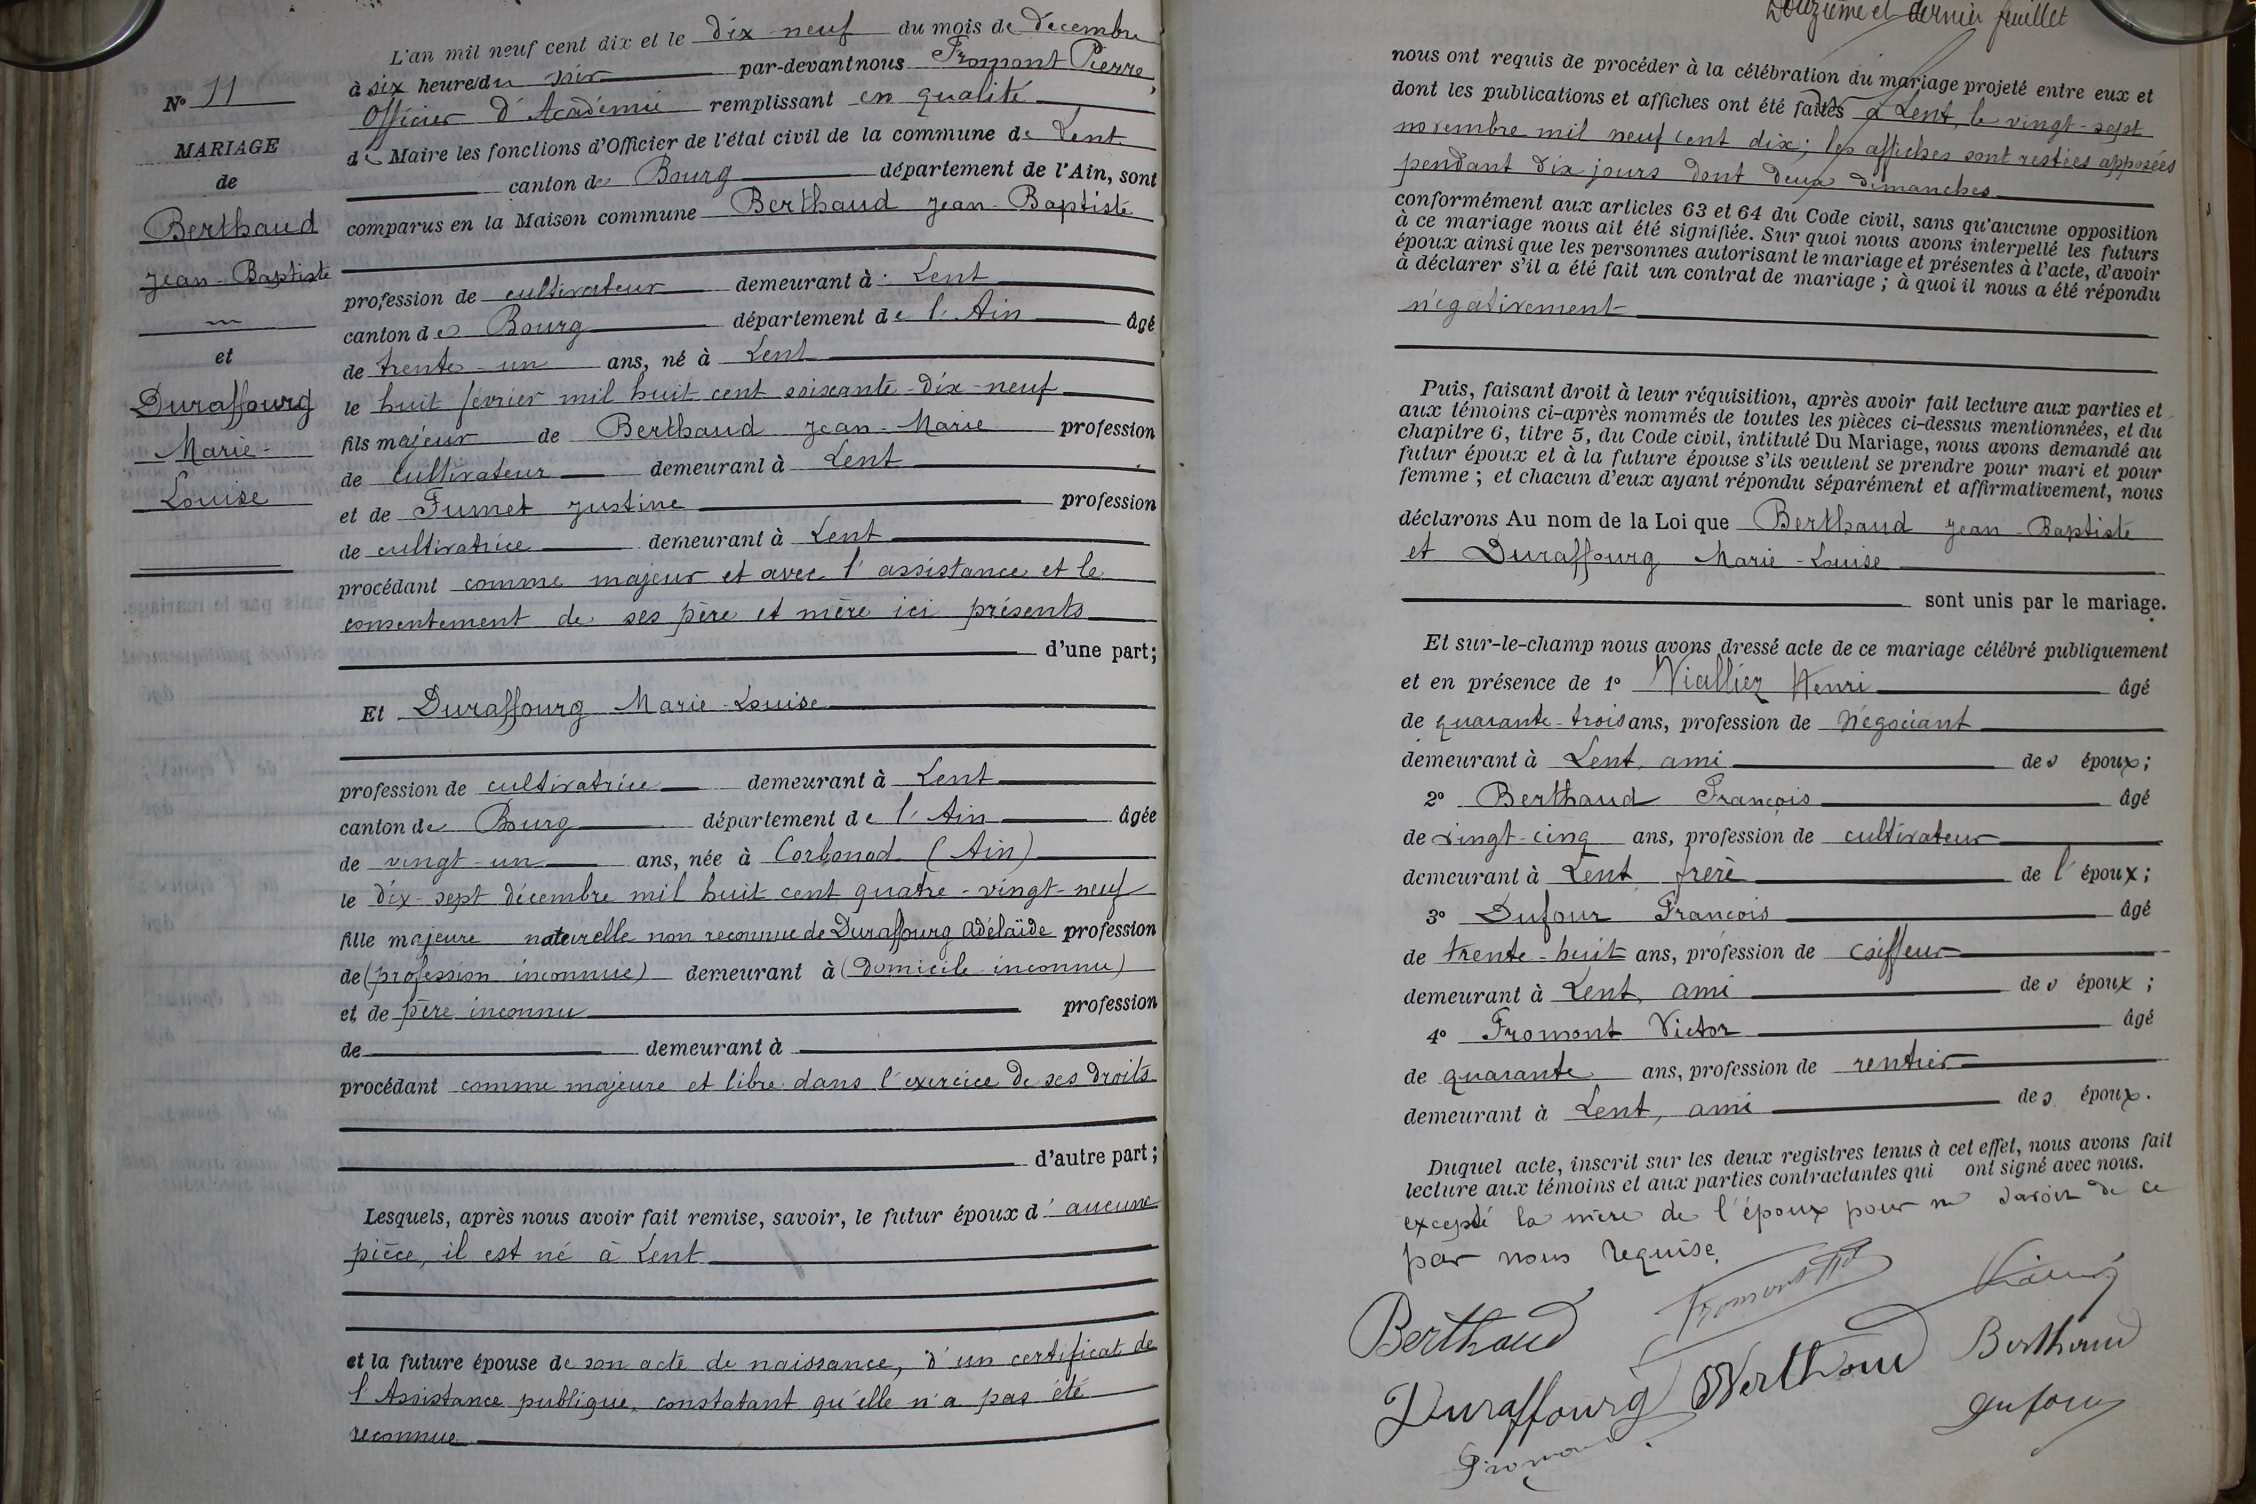 N° 11
MARIAGE
de
Berthaud
Jean-Baptiste
et
Duraffourg
Marie-
Louise
L'an mil neuf cent dix et le dix neuf du mois de décembre
à six heures du soir par-devant nous Fromont Pierre,
Officier d'Académie remplissant en qualité
de Maire les fonctions d'Officier de l'état civil de la commune de Lent
canton de Bourg département de l'Ain, sont
comparus en la Maison commune Berthaud Jean-Baptiste
profession de cultivateur demeurant à Lent
canton de Bourg département de l'Ain âgé
de trente-un ans, né à Lent
le huit février mil huit cent soixante-dix-neuf
fils majeur de Berthaud Jean-Marie profession
de cultivateur demeurant à Lent
et de Fumet Justine profession
de cultivatrice demeurant à Lent
procédant comme majeur et avec l'assistance et le
consentement de ses père et mère ici présents
d'une part;
Et Duraffourg Marie-Louise
profession de cultivatrice demeurant à Lent
canton de Bourg département de l'Ain âgée
de vingt-un ans, née à Corbonod (Ain)
le dix-sept décembre mil huit cent quatre-vingt-neuf
fille majeure naturelle non reconnue de Duraffourg Adélaïde profession
de (profession inconnue) demeurant à (domicile inconnu)
et de père inconnu profession
de demeurant à
procédant comme majeure et libre dans l'exercice de ses droits
d'autre part;
Lesquels, après nous avoir fait remise, savoir, le futur époux d'aucune
pièce, il est né à Lent
et la future épouse de son acte de naissance, d'un certificat de
l'Assistance publique, constatant qu'elle n'a pas été
reconnue
Douzième et dernier feuillet
nous ont requis de procéder à la célébration du mariage projeté entre eux et
dont les publications et affiches ont été faites à Lent, le vingt-sept
novembre mil neuf cent dix; les affiches sont restées apposées
pendant dix jours dont deux dimanches
conformément aux articles 63 et 64 du Code civil, sans qu'aucune opposition
à ce mariage nous ait été signifiée. Sur quoi nous avons interpellé les futurs
époux ainsi que les personnes autorisant le mariage et présentes à l'acte, d'avoir
à déclarer s'il a été fait un contrat de mariage; à quoi il nous a été répondu
négativement
Puis, faisant droit à leur réquisition, après avoir fait lecture aux parties et
aux témoins ci-après nommés de toutes les pièces ci-dessus mentionnées, et du
chapitre 6, titre 5, du Code civil, intitulé Du Mariage, nous avons demandé au
futur époux et à la future épouse s'ils veulent se prendre pour mari et pour
femme; et chacun d'eux ayant répondu séparément et affirmativement, nous
déclarons Au nom de la Loi que Berthaud Jean-Baptiste
et Duraffourg Marie-Louise
sont unis par le mariage.
Et sur-le-champ nous avons dressé acte de ce mariage célébré publiquement
et en présence de 1° Vialliez Henri âgé
de quarante-trois ans, profession de Négociant
demeurant à Lent, ami des époux;
2° Berthaud François âgé
de vingt-cinq ans, profession de cultivateur
demeurant à Lent frère de l'époux;
3° Dufour François âgé
de trente-huit ans, profession de coiffeur
demeurant à Lent, ami des époux;
4° Fromont Victor âgé
de quarante ans, profession de rentier
demeurant à Lent, ami des époux.
Duquel acte, inscrit sur les deux registres tenus à cet effet, nous avons fait
lecture aux témoins et aux parties contractantes qui ont signé avec nous.
excepté la mère de l'époux pour ne savoir de ce
par nous requise.
Berthaud
Duraffourg Berthaud Berthaud
Fromont Dufour